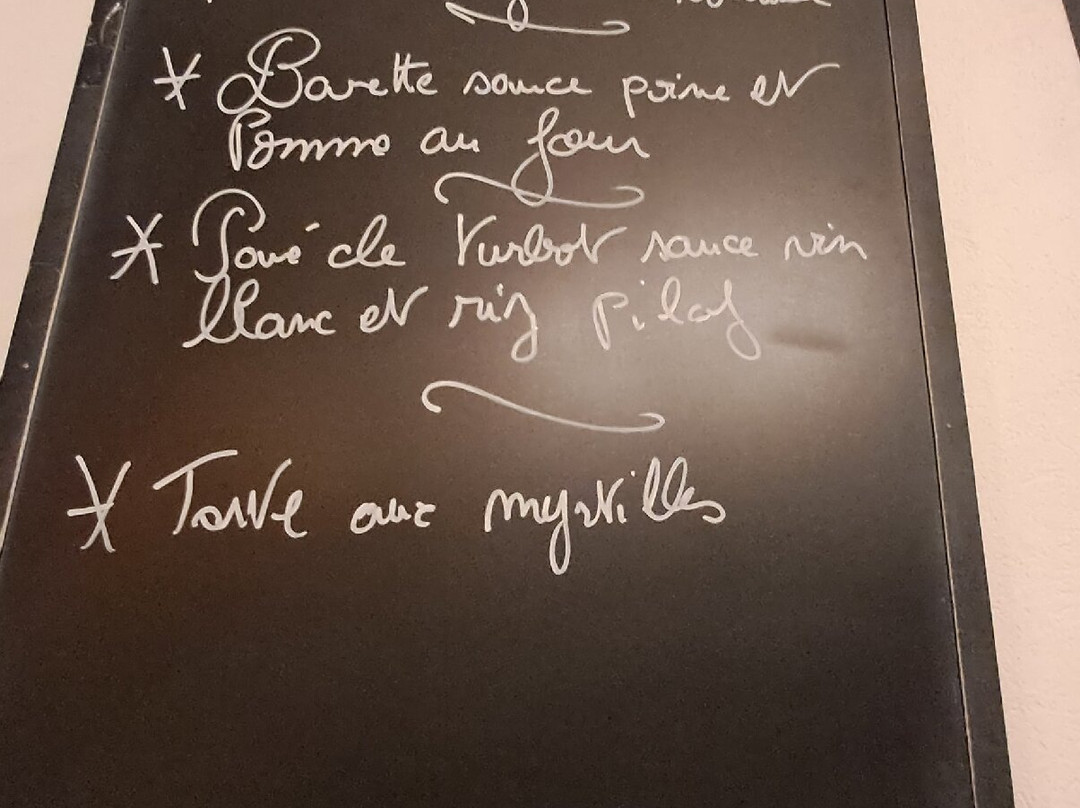 * Bavette sauce poivre et
Pomme au four
* Pavé de Turbot sauce vin
blanc et riz pilaf
* Tarte aux myrtilles